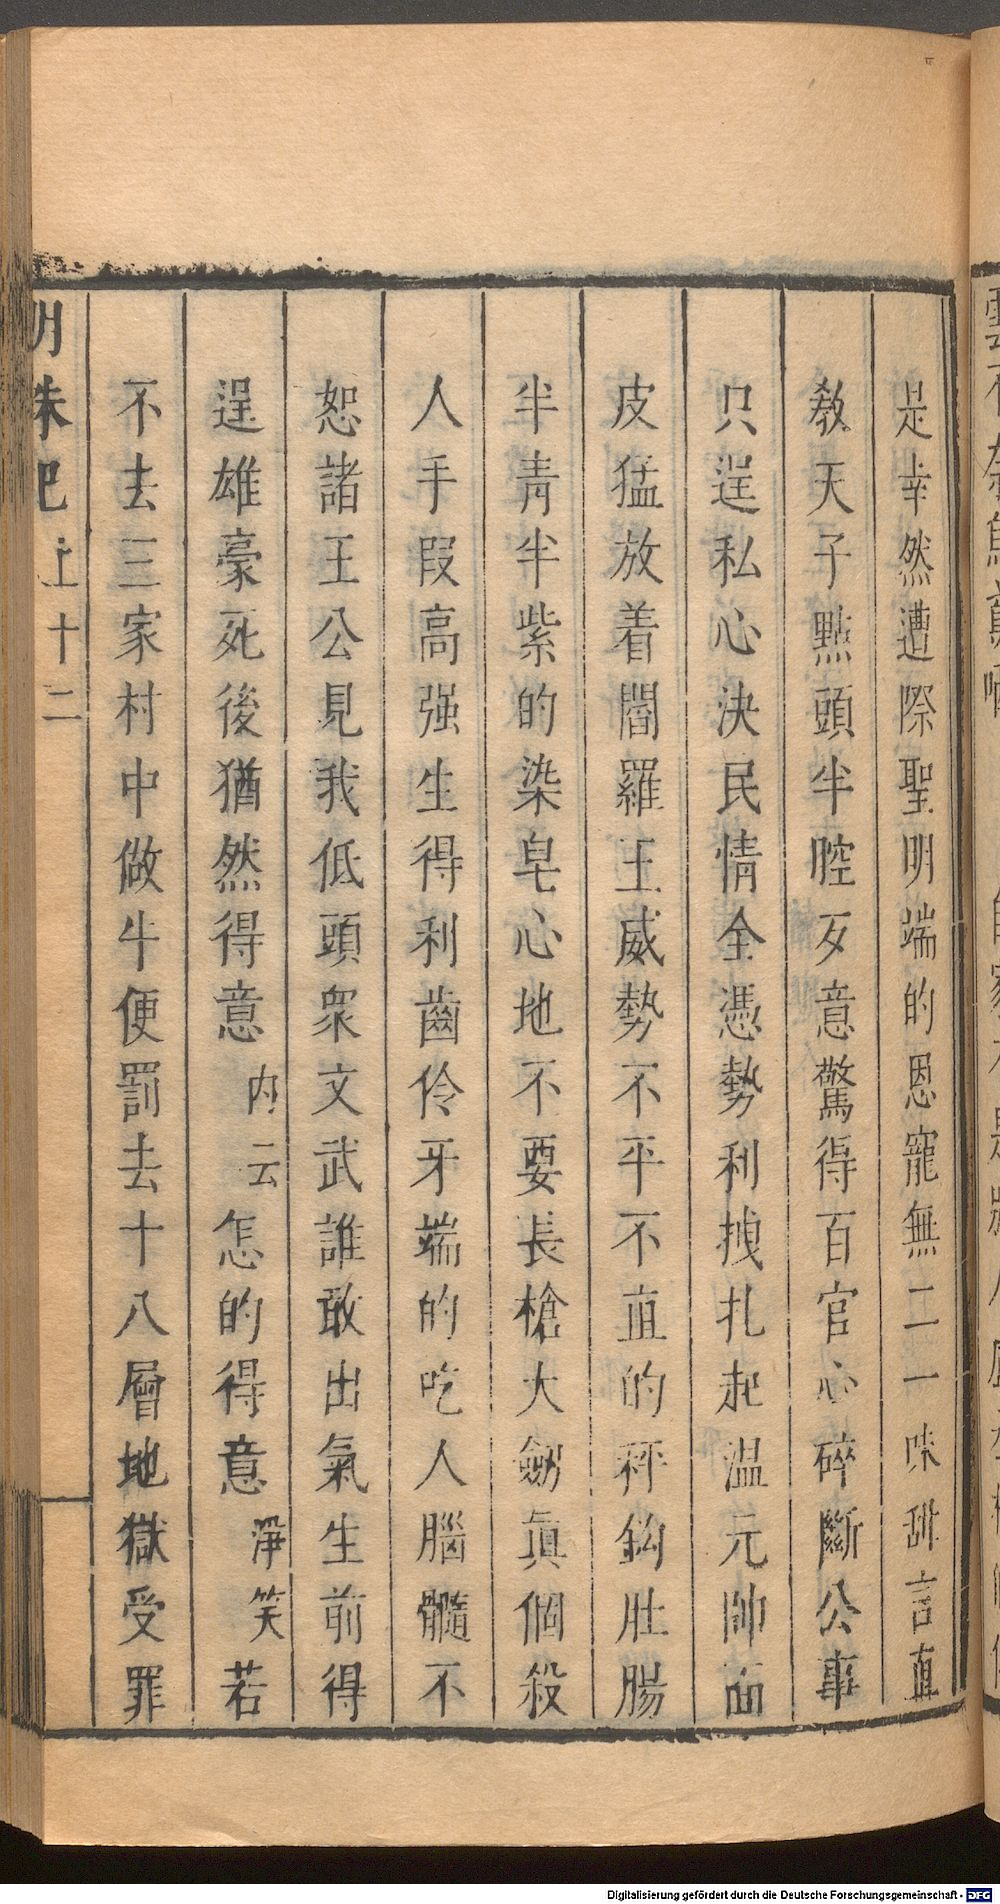 是幸然遭際聖明端的恩寵無二一味甜言直
教天子點頭半腔歹意驚得百官心碎斷公事
只逞私心決民情全憑勢利拽扎起温元帥面
皮猛放着閻羅王威勢不平不直的秤鈎肚腸
半青半紫的染皂心地不要長槍大劒眞個殺
人手段高强生得利齒伶牙端的吃人腦髓不
恕諸王公見我低頭衆文武誰敢出氣生前得
逞雄豪死後猶然得意内云怎的得意淨笑若
不去三家村中做牛便罰去十八層地獄受罪
明珠記 上 十二
Digitalisierung gefördert durch die Deutsche Forschungsgemeinschaft - DFG